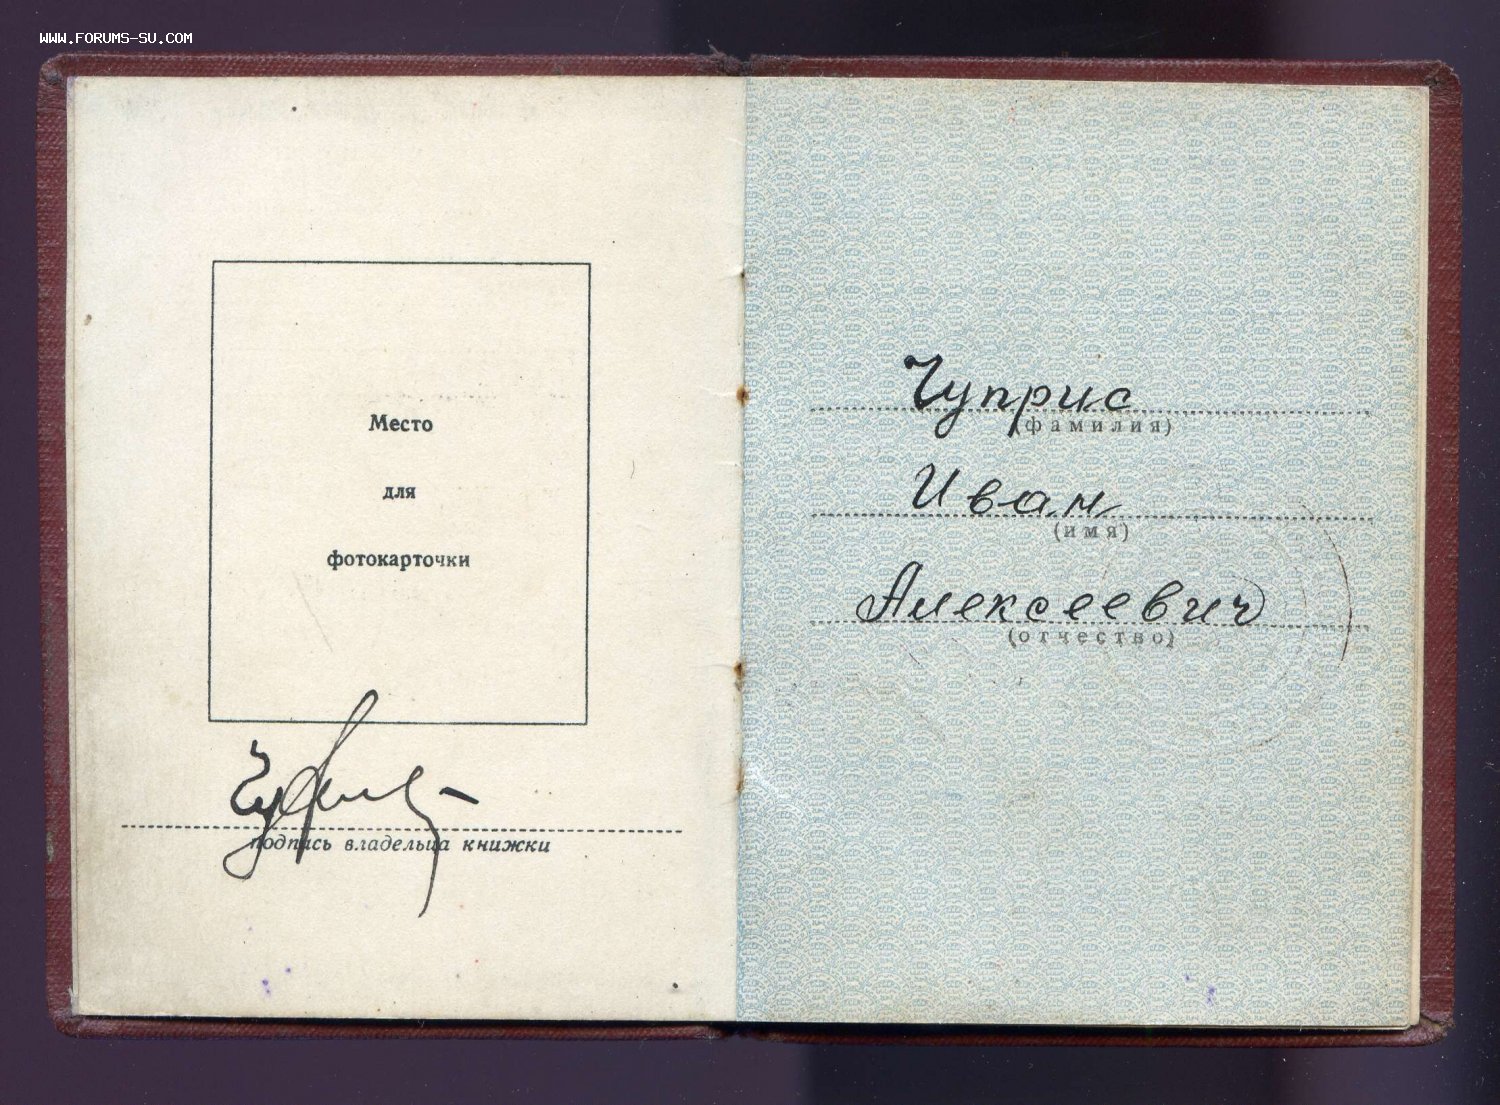 WWW.FORUMS-SU.COM
Место
для
фотокарточки
подпись владельца книжки
Чуприс
(фамилия)
Иван
(имя)
Алексеевич
(отчество)